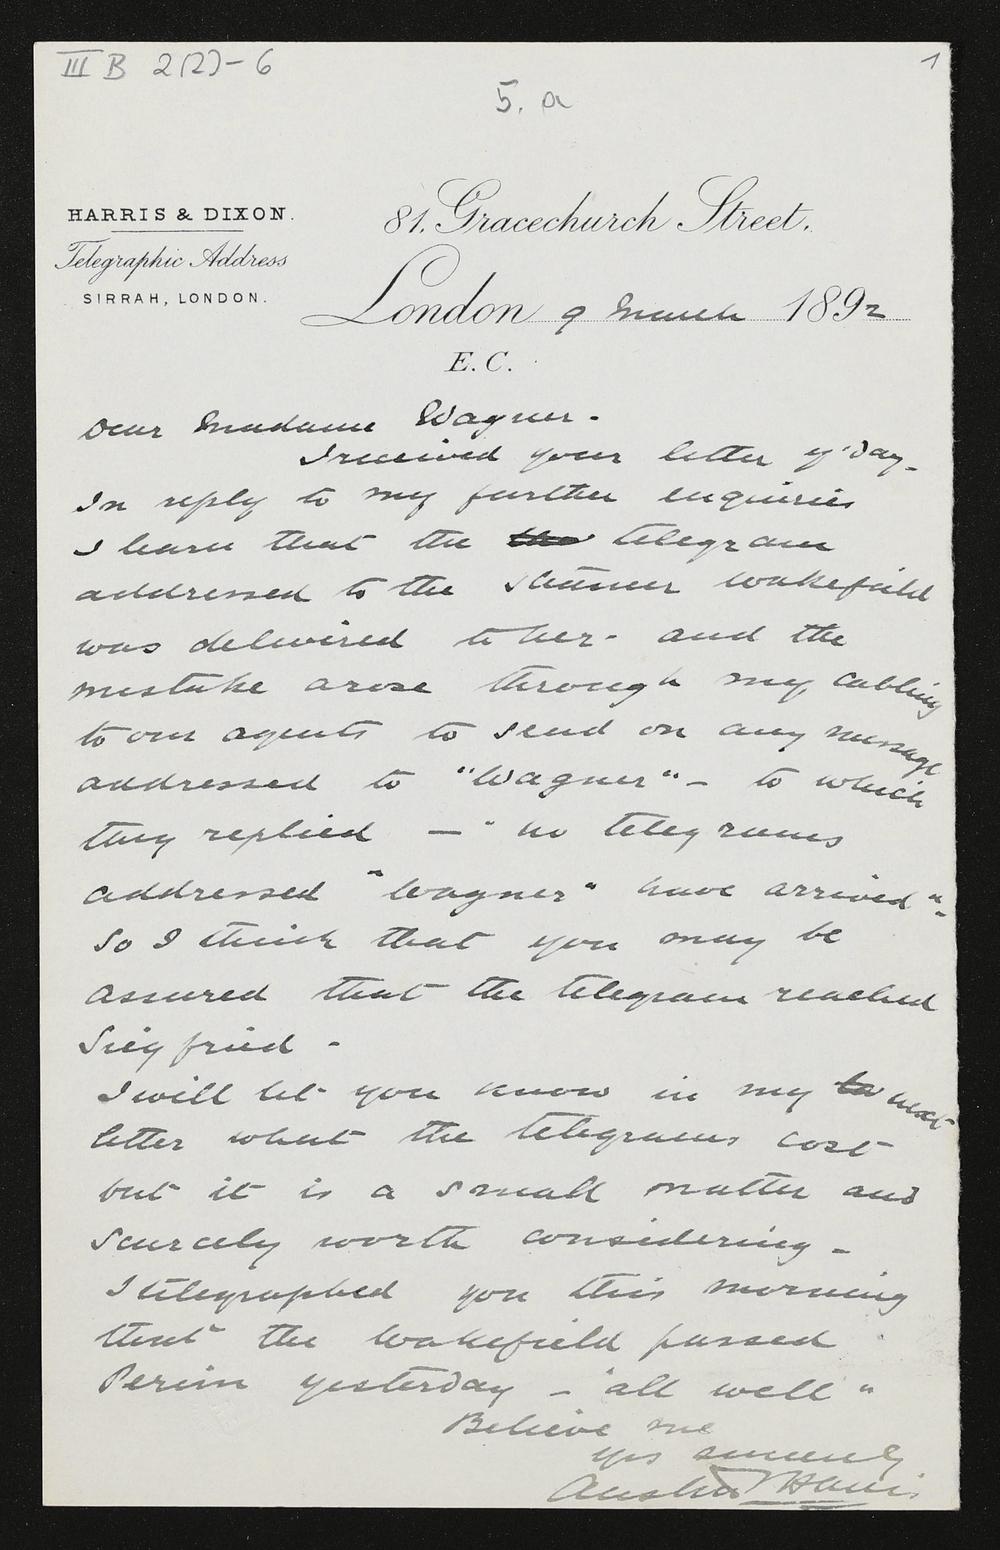 III B 2(2)-6
1
5. a
HARRIS & DIXON.
Telegraphic Address
SIRRAH, LONDON.
81. Gracechurch Street.
London 9 March 1892
E.C.
Dear Madame Wagner -
I received your letter y'day -
In reply to my further enquiries
I learn that the the telegram
addressed to the steamer Wakefield
was delivered to her - and the
mistake arose through my cabling
to our agents to send on any message
addressed to "Wagner" - to which
they replied - "no telegrams
addressed "Wagner" have arrived" -
So I think that you may be
assured that the telegram reached
Siegfried -
I will let you know in my next
letter what the telegrams cost
but it is a small matter and
scarcely worth considering -
I telegraphed you this morning
that the Wakefield passed
Perim yesterday - "all well"
Believe me
yrs sincerely
Austin Harris